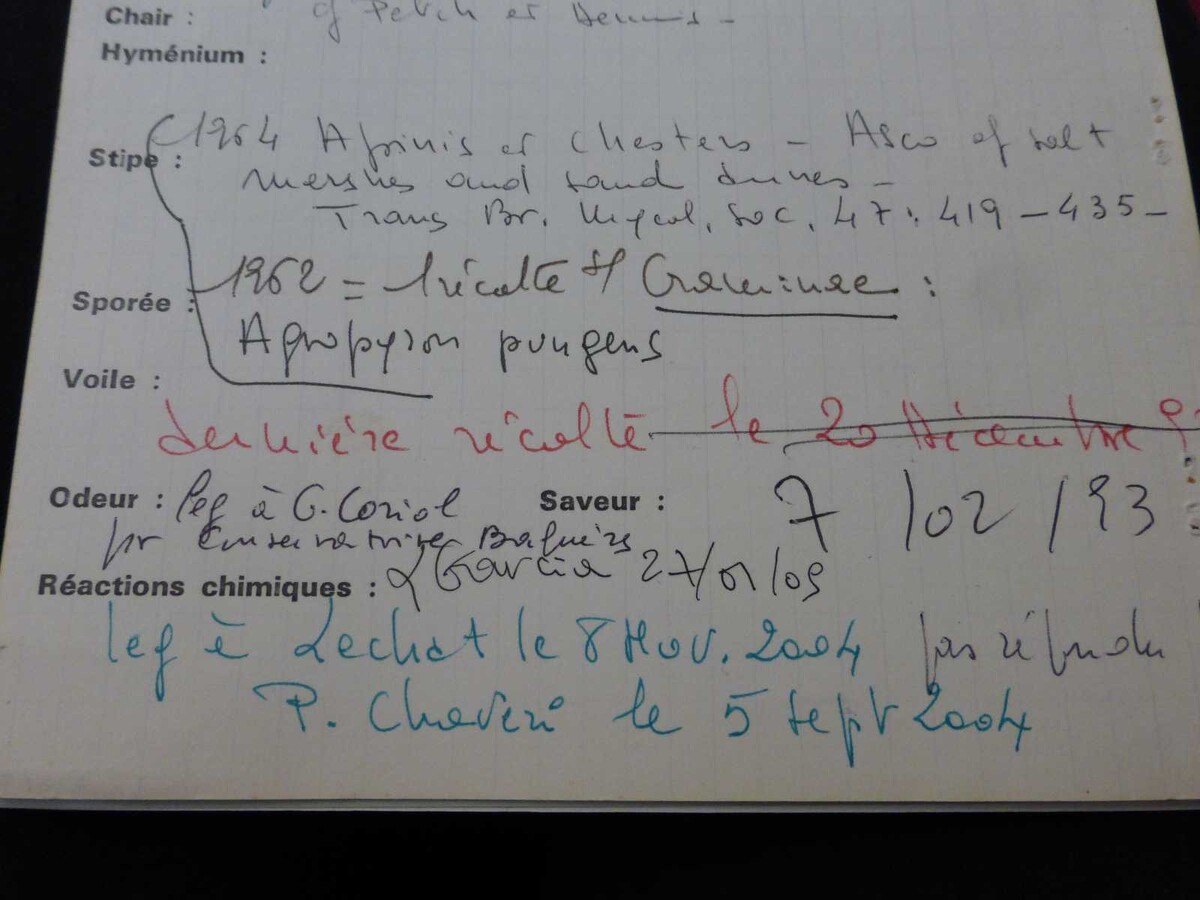 Chair : of Petch et Dennis -
Hyménium :
(1964 Apinis et Chesters - Asco of salt
Stipe :
mershes and sand dunes -
Trans Br. Mycol. soc. 47 : 419 - 435 -
1962 = 1 récolte s/ Graminae :
Sporée :
Agropyron pungens
Voile :
dernière récolte le 20 Décembre
Odeur : leg à G. Corriol Saveur : 7 / 02 / 93
pr Conservatoire
Réactions chimiques : Garcia 27/01/09
leg à Lechat le 8 Nov. 2004 pas répondu
P. le 5 sept 2004